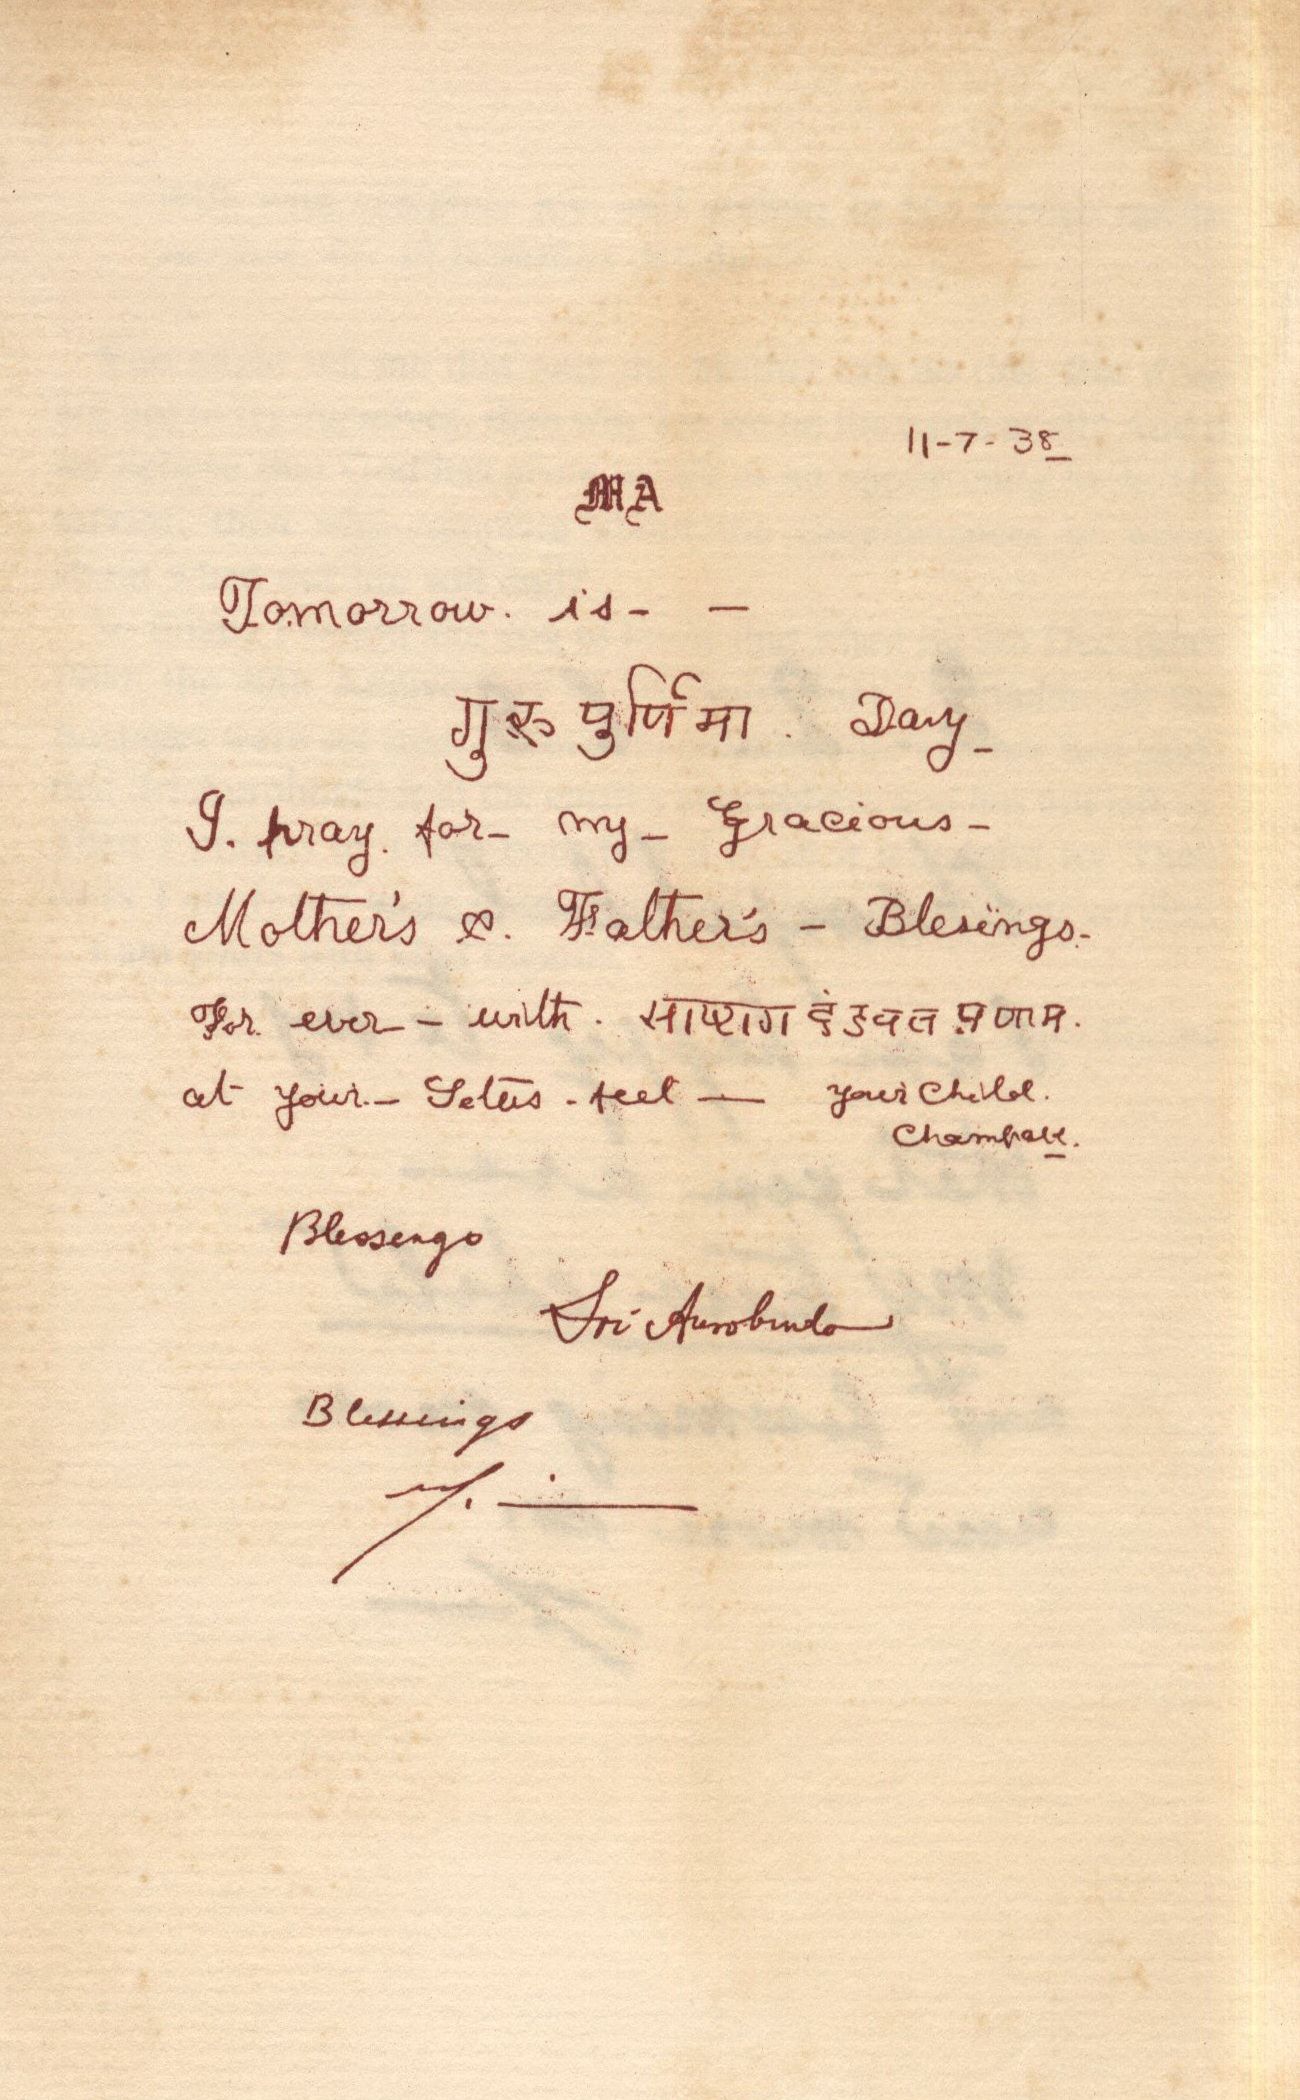 11-7-38
MA
Tomorrow. is- —
गुरू पुर्णिमा. Day-
I. pray. for- my- Gracious-
Mother's &. Father's - Blesings.-
For. ever - with. साष्टाग दंडवत प्रणाम.
at your.- Lotus - feet — your Child.
Champak.
Blessings
Sri Aurobindo
Blessings